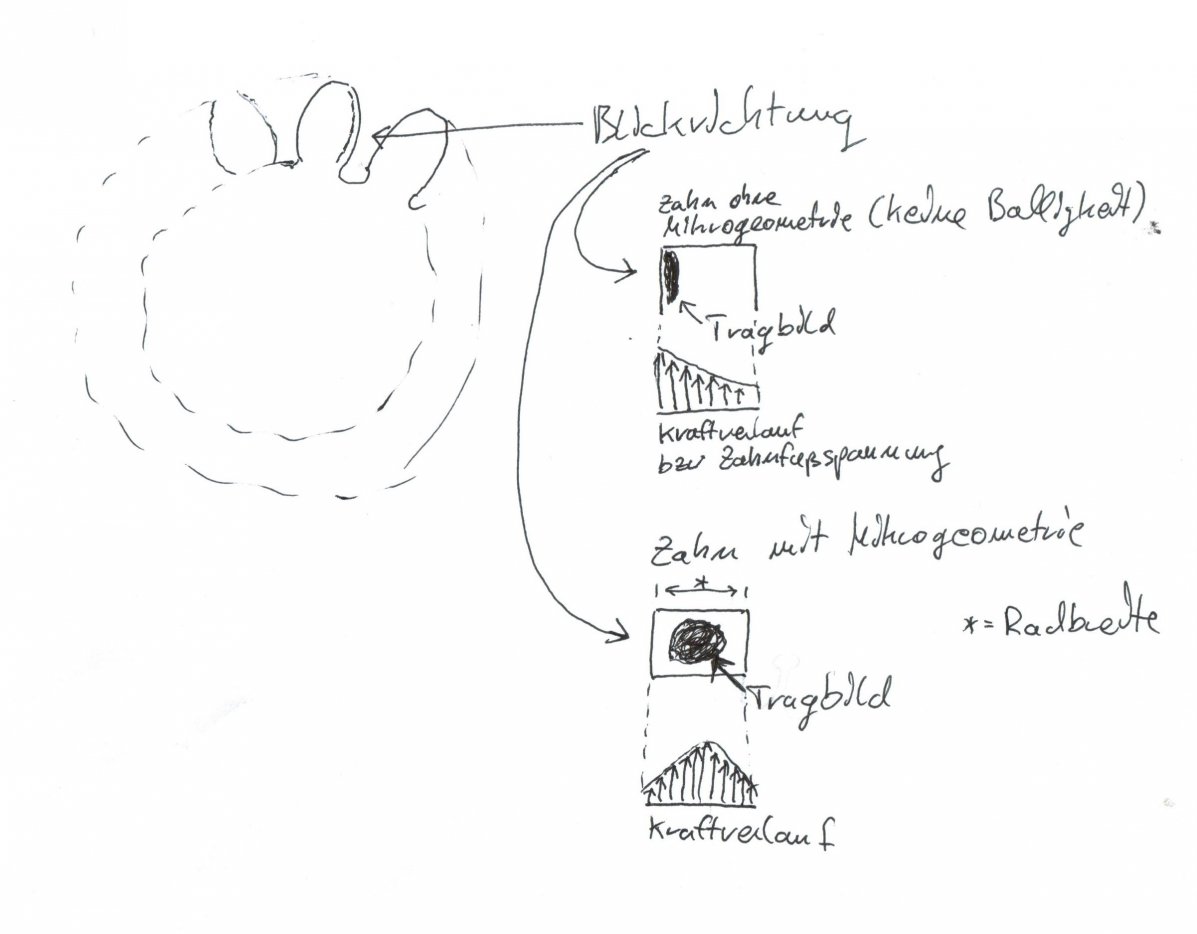 Blickrichtung
Zahn ohne
Mikrogeometrie (keine Balligkeit)
Tragbild
Kraftverlauf
bzw Zahnfußspannung
Zahn mit Mikrogeometrie
*
* = Radbreite
Tragbild
Kraftverlauf